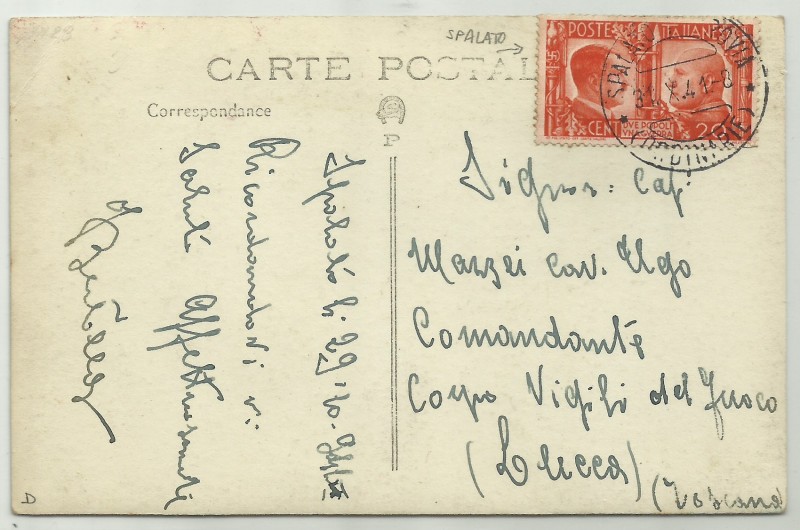 SPALATO
CARTE POSTAL
Correspondance
P
POSTE ITALIANE
DVE POPOLI
VNA GVERRA
CENT 20
SPALA OVIA
31.X.41-8
(ORDINARIE)
Spalato li 29-10-
Ricordandovi vi
Saluto Affettuosamente
Signor: Cap:
Mazzei cav. Ugo
Comandante
Corpo Vigili del fuoco
(Lucca)
(Toscana)
D